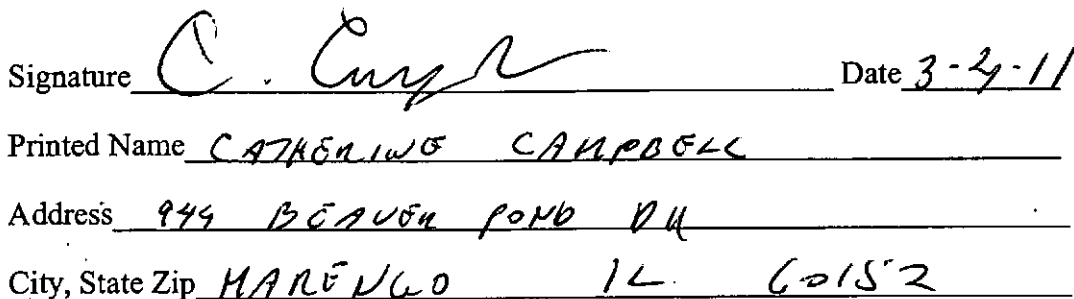 Signature C. Date 3-24-11
Printed Name CATHERINE CAMPBELL
Address 944 BEAVER POND DR
City, State Zip MARENGO IL 60152